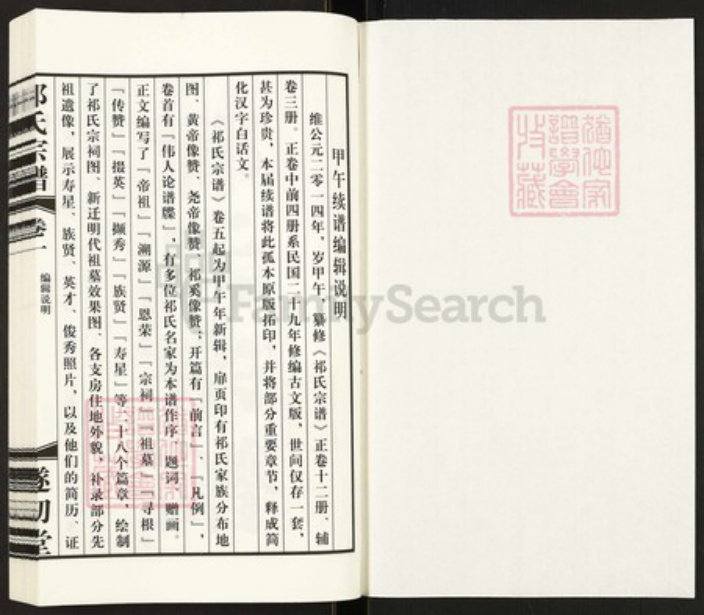 甲午续谱编辑说明
维公元二零一四年，岁甲午，纂修《祁氏宗谱》正卷十二册、辅
卷三册。正卷中前四册系民国二十九年修编古文版，世间仅存一套，
甚为珍贵，本届续谱将此孤本原版拓印，并将部分重要章节，释成简
化汉字白话文。
《祁氏宗谱》卷五起为甲午年新辑，扉页印有祁氏家族分布地
图、黄帝像赞、尧帝像赞、祁奚像赞；开篇有『前言』、『凡例』，
卷首有『伟人论谱牒』，有多位祁氏名家为本谱作序、题词、赠画。
正文编写了『帝祖』『溯源』『恩荣』『宗祠』『祖墓』『寻根』
『传赞』『掇英』『撷秀』『族贤』『寿星』等二十八个篇章，绘制
了祁氏宗祠图、新迁明代祖墓效果图、各支房住地外貌，补录部分先
祖遗像，展示寿星、族贤、英才、俊秀照片，以及他们的简历、证
祁氏宗谱 卷一 编辑说明 遂初堂
FamilySearch
谱学会
收藏